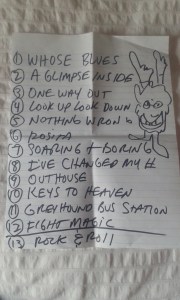 ① WHOSE BLUES
② A GLIMPSE INSIDE
③ ONE WAY OUT
④ LOOK UP LOOK DOWN
⑤ NOTHING WRONG
⑥ ROSITA
⑦ SOARING + BORING
⑧ I'VE CHANGED MY
⑨ OUTHOUSE
⑩ KEYS TO HEAVEN
⑪ GREYHOUND BUS STATION
⑫ FIGHT MAGIC
⑬ ROCK & ROLL